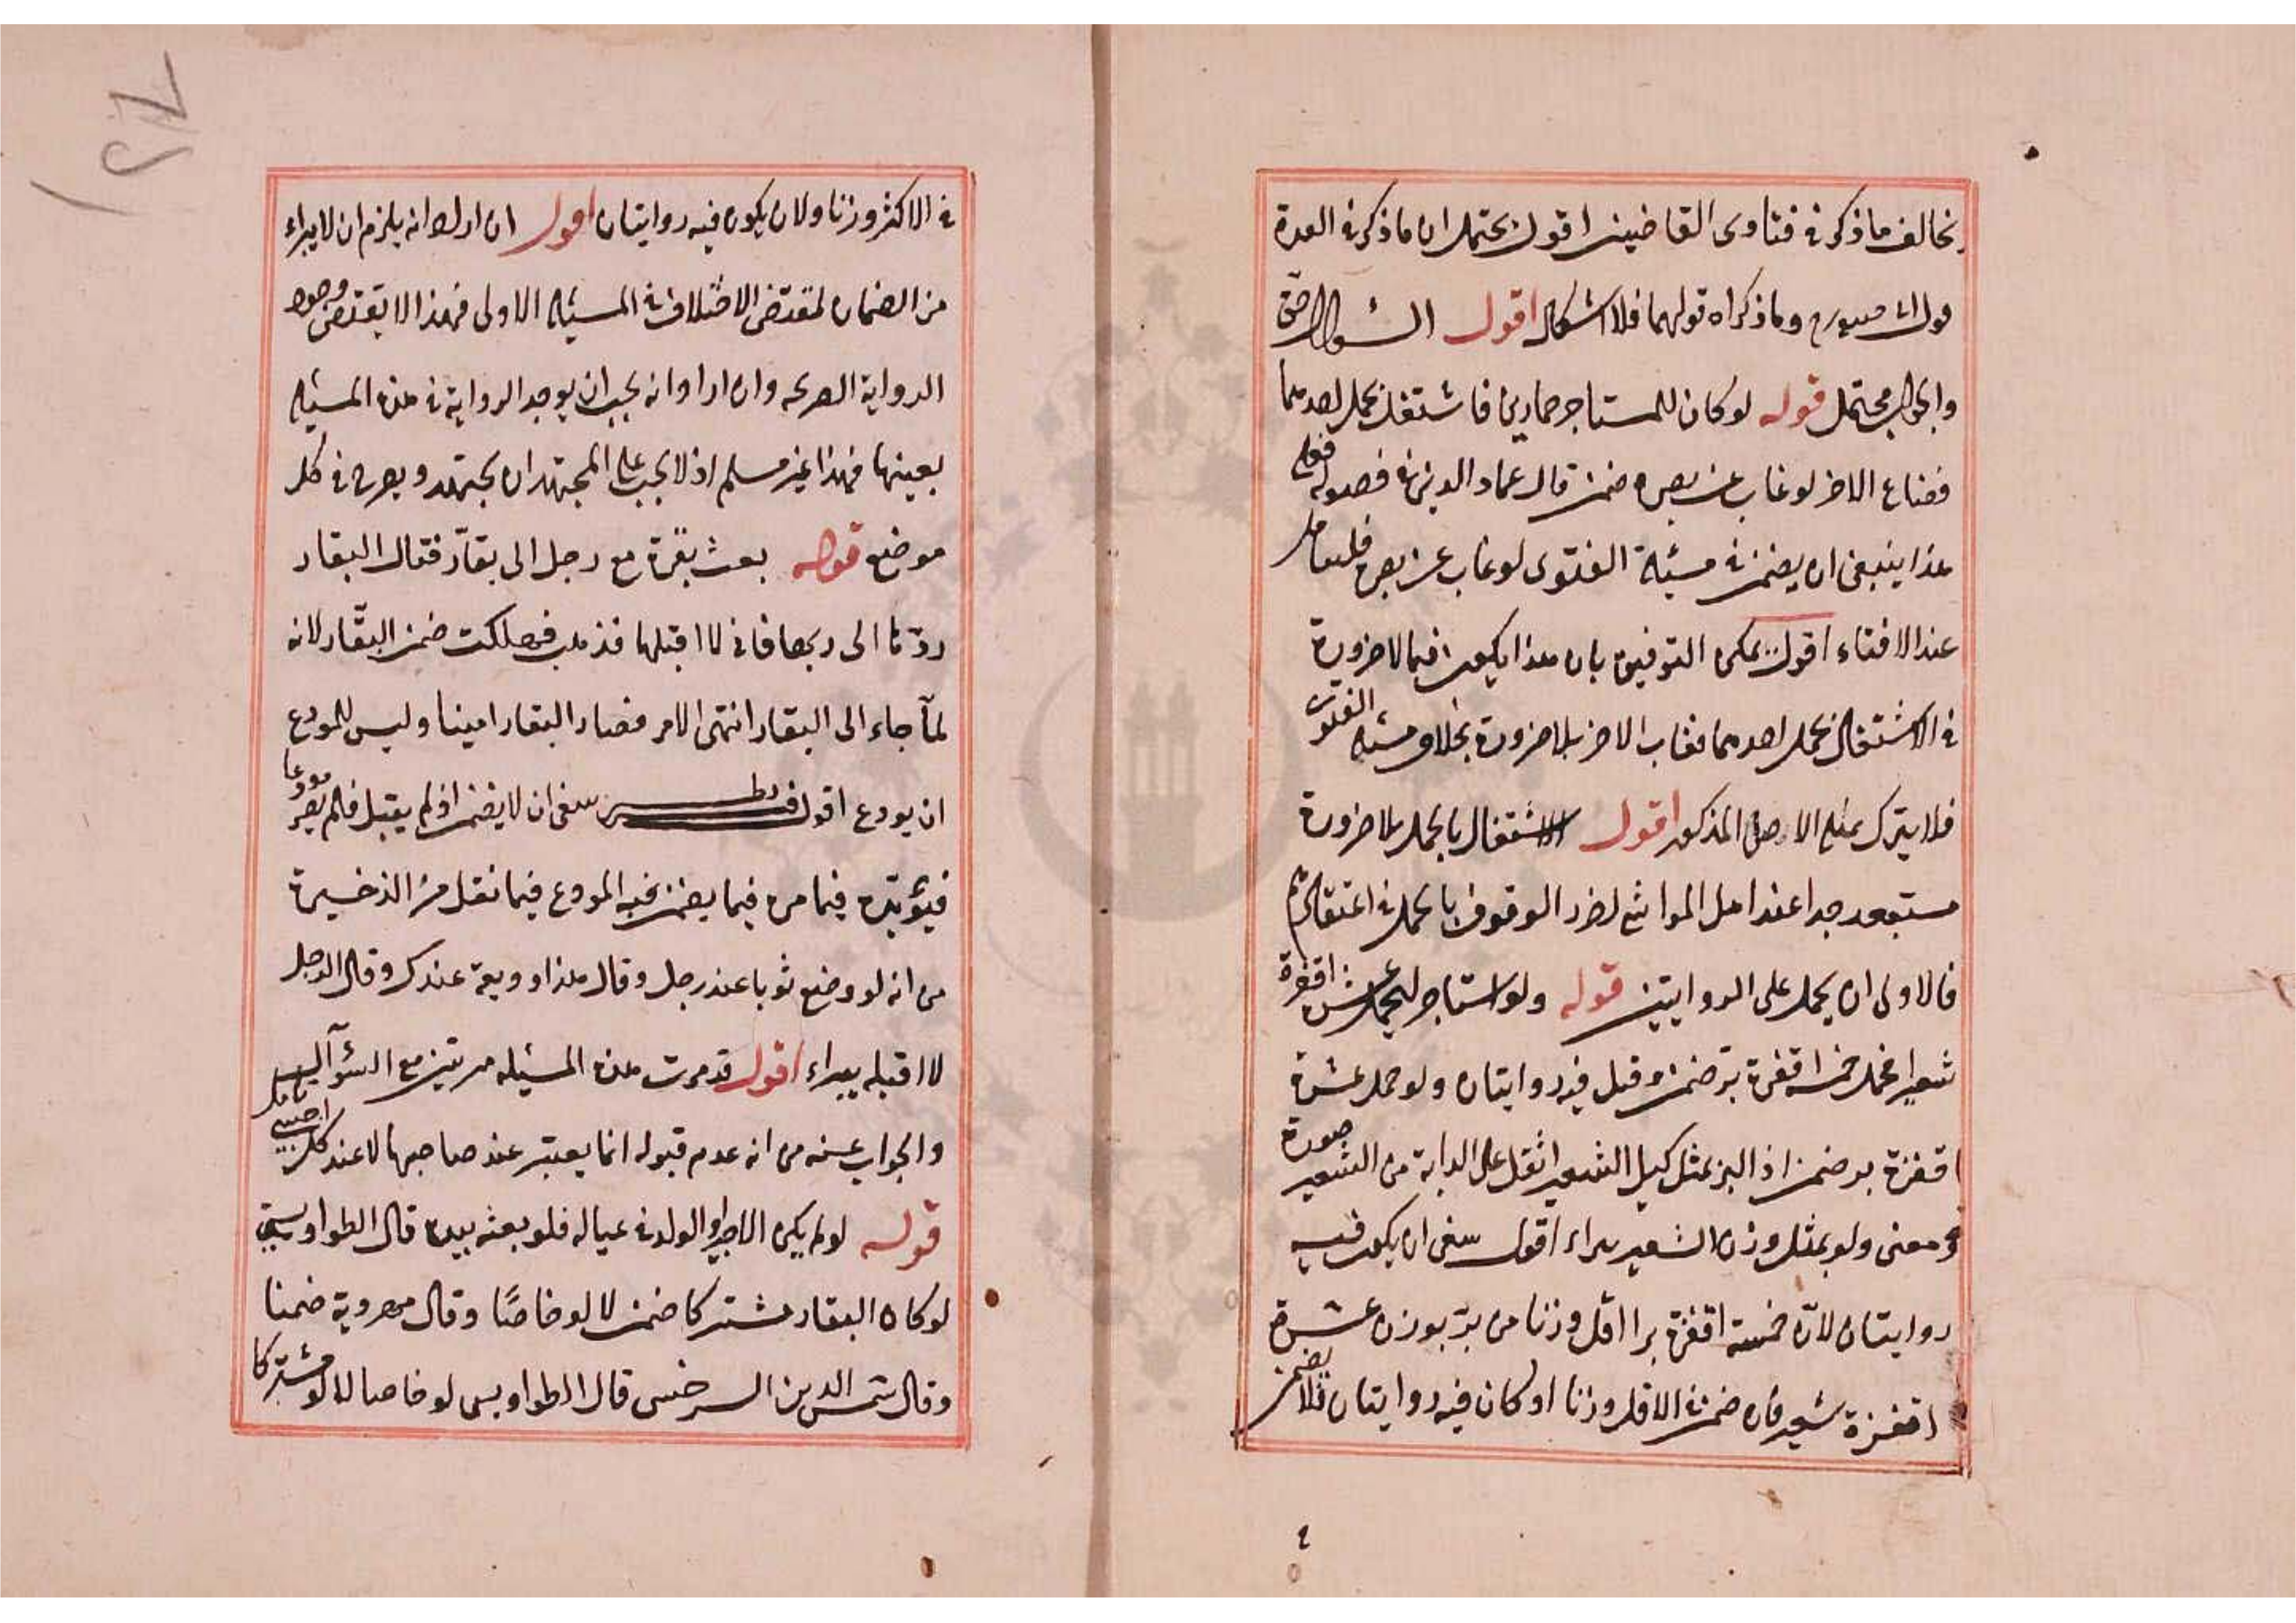 يخالف ما ذكر في فتاوى القاضيين اقول يحتمل ان ما ذكر في العدة
قول ابي وما ذكراه قولهما فلا اشكال اقول السؤال حق
والجواب محتمل قوله لو كان للمستاجر حمارين فاشتغل بحمل احدهما
فضاع الاخر لو غاب عن بصره ضمن قال عماد الدين في فصوله فعلى
هذا ينبغي ان يضمن في مسئلة الفتوى لو غاب عن بصره فليتامل
عند الافتاء اقول يمكن التوفيق بان هذا يكون فيما لا ضرورة
في الاشتغال بحمل احدهما فغاب الاخر بلا ضرورة بخلاف مسئلة الفتوى
فلا يترك بمثله الاصل المذكور اقول الاشتغال بالحمل بلا ضرورة
مستبعد جدا عند اهل المواشي لضرر الوقوف بالحمل في اعتقادهم
فالاولى ان يحمل على الروايتين قوله ولو استاجر ليحمل عشر اقفزة
شعيرا فحمل خمسة اقفزة بر ضمن وقيل فيه روايتان ولو حمل عشرة
اقفزة بر ضمن اذ البر بمثل كيل الشعير اثقل على الدابة من الشعير صورة
ومعنى ولو بمثل وزن الشعير يبراء اقول ينبغي ان يكون فيه
روايتان لان خمسة اقفزة برا اقل وزنا من بر بوزن عشرة
اقفزة شعير فان ضمن في الاقل وزنا او كان فيه روايتان فلان يضمن
في الاكثر وزنا ولان يكون فيه روايتان اقول ان اراد انه يلزم ان لا يبراء
من الضمان لمقتضى الاختلاف في المسئلة الاولى فهذا لا يقتضي وجود
الرواية الصريحة وان اراد انه يجب ان يوجد الرواية في هذه المسئلة
بعينها فهذا غير مسلم اذ لا يجب على المجتهد ان يجتهد ويصرح في كل
موضع قوله بعث بقرة مع رجل الى بقار فقال البقار
ردها الى ربها فاني لا اقبلها فذهب فهلكت ضمن البقار لانه
لما جاء الى البقار انتهى الامر فصار البقار امينا وليس للمودع
ان يودع اقول ينبغي ان لا يضمن اذ لم يقبل فلم يصر مودعا
فيؤيده فيما مر فيما يضمن فيه المودع فيما نقل من الذخيرة
من انه لو وضع ثوبا عند رجل وقال هذا وديعة عندك وقال الرجل
لا اقبله يبراء اقول قد مرت هذه المسئلة مرتين مع السؤال
والجواب عنه من انه عدم قبوله انما يعتبر عند صاحبها لا عند كل اجنبي تامل
قوله لو لم يكن الاجير او الولد في عياله فلو بعثه بيده قال الطواويسي
لو كان البقار مشتركا ضمن لا لو خاصا وقال مهروية ضمنا
وقال شمس الدين السرخسي قال الطواويسي لو خاصا لا لو مشتركا